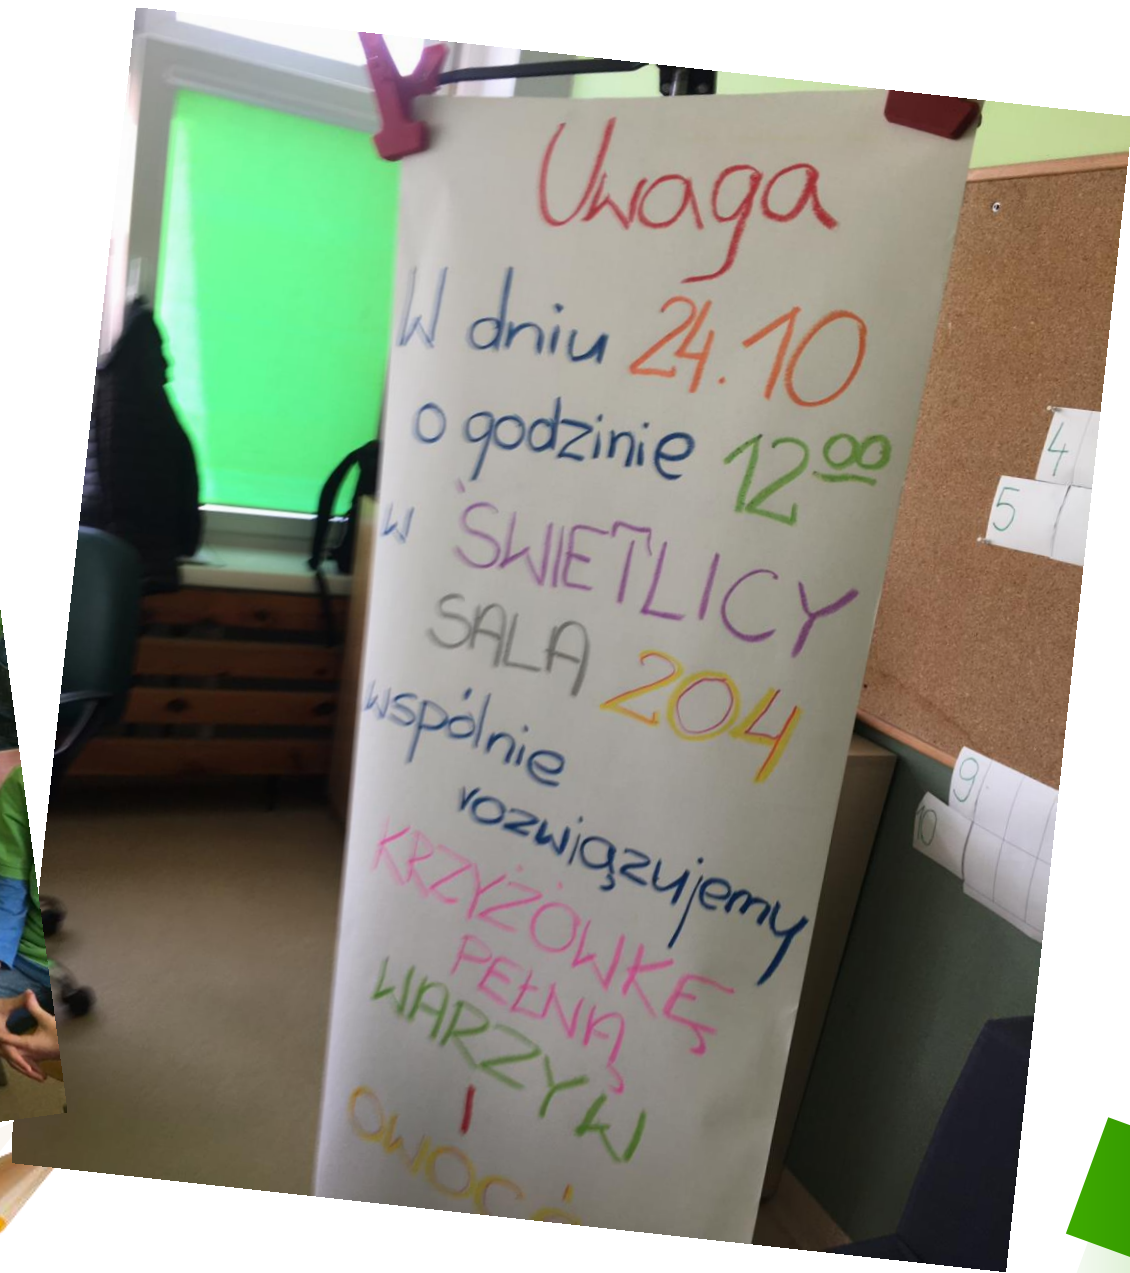 Uwaga
W dniu 24.10
o godzinie 12⁰⁰
w ŚWIETLICY
SALA 204
wspólnie
rozwiązujemy
KRZYŻÓWKĘ
PEŁNĄ
WARZYW
I
4
5
9
10